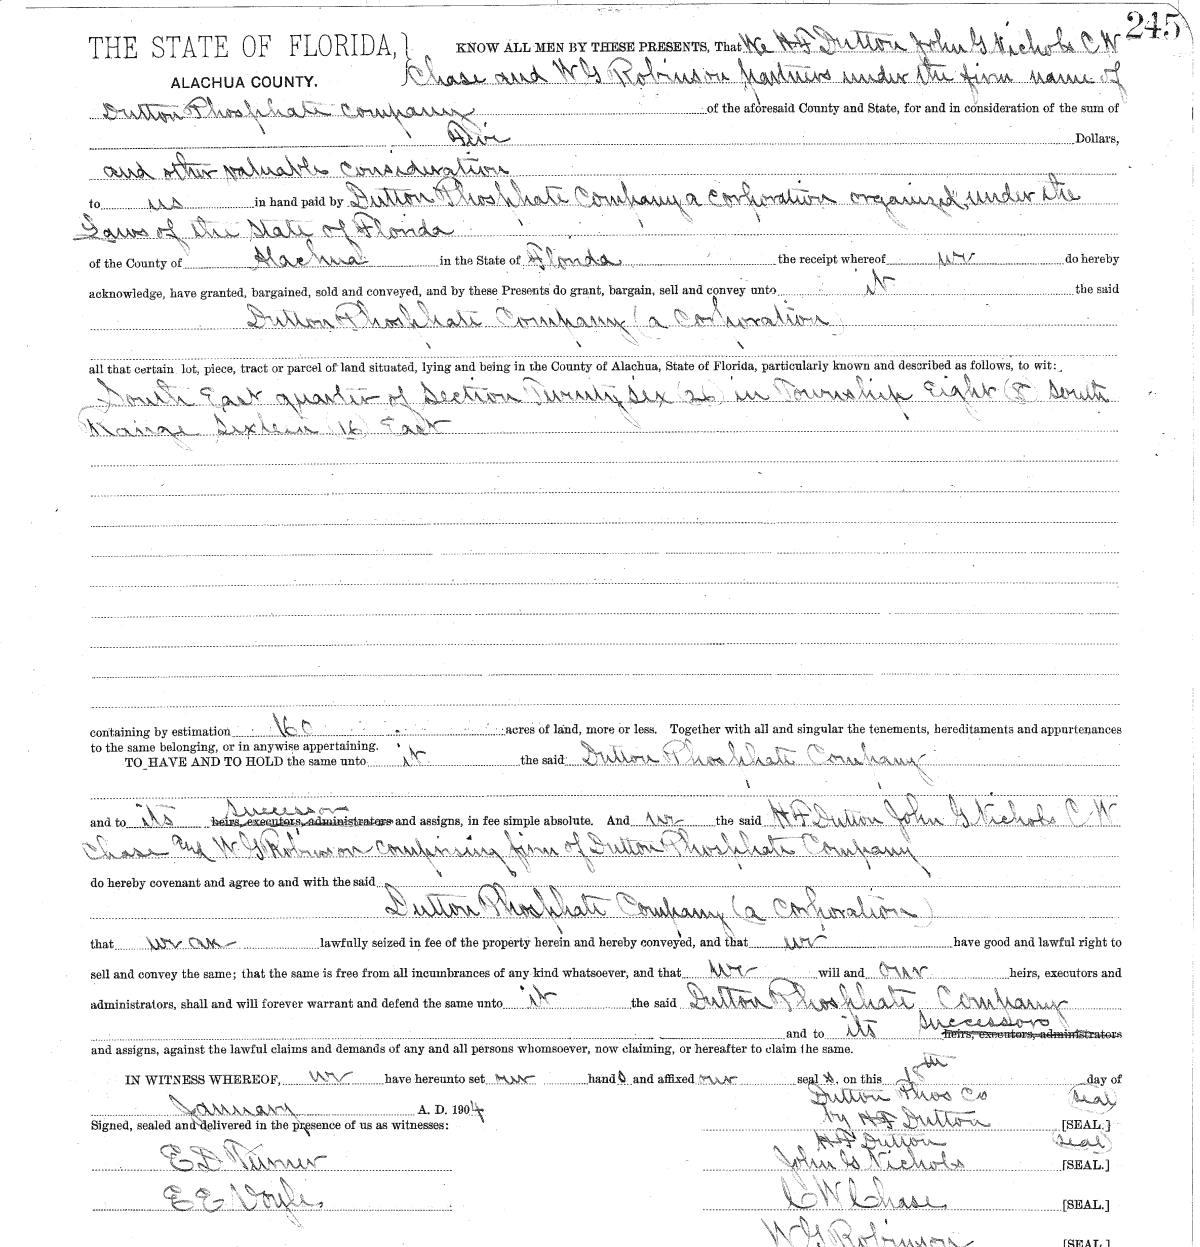 245
THE STATE OF FLORIDA,} KNOW ALL MEN BY THESE PRESENTS, That We H F Dutton John G Nichols C W
ALACHUA COUNTY. Chase and W G Robinson partners under the firm name of
Dutton Phosphate Company of the aforesaid County and State, for and in consideration of the sum of
Five Dollars,
and other valuable consideration
to us in hand paid by Dutton Phosphate Company a corporation organized under the
Laws of the State of Florida
of the County of Alachua in the State of Florida the receipt whereof we do hereby
acknowledge, have granted, bargained, sold and conveyed, and by these Presents do grant, bargain, sell and convey unto it the said
Dutton Phosphate Company (a corporation)
all that certain lot, piece, tract or parcel of land situated, lying and being in the County of Alachua, State of Florida, particularly known and described as follows, to wit:
South East quarter of Section Twenty Six (26) in Township Eight (8) South
Range Sixteen (16) East
containing by estimation 160 acres of land, more or less. Together with all and singular the tenements, hereditaments and appurtenances
to the same belonging, or in anywise appertaining.
TO HAVE AND TO HOLD the same unto it the said Dutton Phosphate Company
Successors
and to its heirs, executors, administrators and assigns, in fee simple absolute. And we the said H F Dutton John G Nichols C W
Chase and W G Robinson comprising firm of Dutton Phosphate Company
do hereby covenant and agree to and with the said
Dutton Phosphate Company (a corporation)
that we are lawfully seized in fee of the property herein and hereby conveyed, and that we have good and lawful right to
sell and convey the same; that the same is free from all incumbrances of any kind whatsoever, and that we will and our heirs, executors and
administrators, shall and will forever warrant and defend the same unto it the said Dutton Phosphate Company
and to its successors heirs, executors, administrators
and assigns, against the lawful claims and demands of any and all persons whomsoever, now claiming, or hereafter to claim the same.
IN WITNESS WHEREOF, we have hereunto set our hands and affixed our seals, on this 18th day of
January A. D. 1904 Dutton Phos Co (Seal)
Signed, sealed and delivered in the presence of us as witnesses: by H F Dutton [SEAL.]
H F Dutton (Seal)
E D Turner John G Nichols [SEAL.]
E E Voyle C W Chase [SEAL.]
W G Robinson [SEAL.]